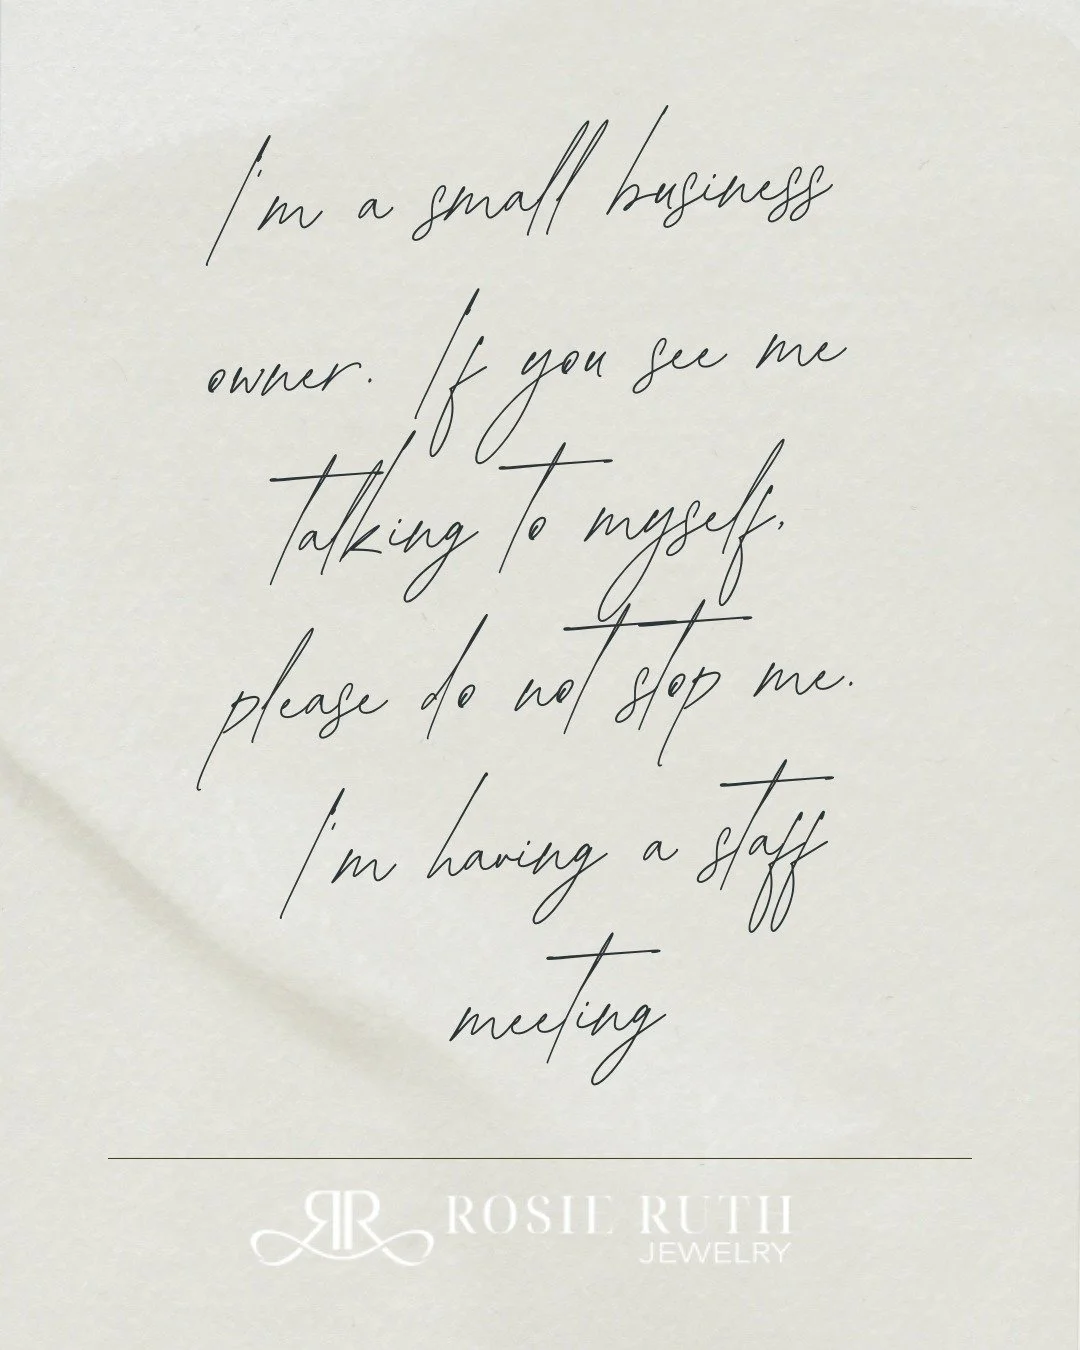 I'm a small business
owner. If you see me
talking to myself,
please do not stop me.
I'm having a staff
meeting
RR ROSIE RUTH
JEWELRY